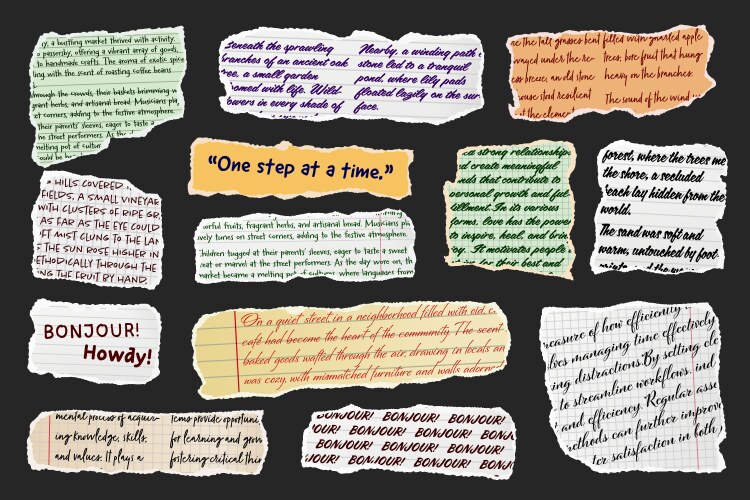 a bustling market thrived with activity.
passersby, offering a vibrant array of goods,
to handmade crafts. The aroma of exotic spice
ling with the scent of roasting coffee beans.
through the crowds, their baskets brimming
grant herbs, and artisanal bread. Musicians pla
et corners, adding to the festive atmosphere.
their parents' sleeves, eager to taste a
the street performers. As the
melting pot of cultur
ould be
eneath the sprawling
branches of an ancient oak
ree, a small garden
oomed with life. Wild-
owers in every shade of
Nearby, a winding path
stone led to a tranquil
pond, where lily pads
floated lazily on the sur
face.
the tall grasses bent
wayed under the
breeze, an old stone
ouse stood resilient
t the eleme
filled with gnarled apple
trees, bore fruit that hung
heavy on the branches.
The sound of the wind
"One step at a time."
HILLS COVERED
FIELDS, A SMALL VINEYAR
WITH CLUSTERS OF RIPE GR
AS FAR AS THE EYE COULD
FT MIST CLUNG TO THE LAN
THE SUN ROSE HIGHER IN
ETHODICALLY THROUGH THE
NG THE FRUIT BY HAND.
orful fruits, fragrant herbs, and artisanal bread. Musicians pla
vely tunes on street corners, adding to the festive atmosphere.
Children tugged at their parents' sleeves, eager to taste a sweet
eat or marvel at the street performers. As the day wore on, th
market became a melting pot of cultures where languages from
a strong relationship
d create meaningful
nds that contribute to
ersonal growth and ful
fillment. In its various
forms, love has the power
to inspire, heal, and brin
It motivates people
their best and
forest, where the trees me
the shore, a secluded
each lay hidden from the
world.
The sand was soft and
warm, untouched by foot
BONJOUR!
Howdy!
On a quiet street in a neighborhood filled with old,
café had become the heart of the community. The scent
baked goods wafted through the air, drawing in locals an
was cozy, with mismatched furniture and walls adorne
easure of how efficiency
lves managing time effectively
ing distractions. By setting cle
to streamline workflows, ind
and efficiency. Regular asse
ethods can further improve
ter satisfaction in both
mental process of acquir-
ing knowledge, skills,
and values. It plays a
tems provide opportuni
for learning and grow
fostering critical thin
BONJOUR! BONJOUR! BONJOUR!
JOUR! BONJOUR! BONJOUR! BONJ
BONJOUR! BONJOUR! BONJOUR!
JOUR! BONJOUR! BONJOUR! BONJ